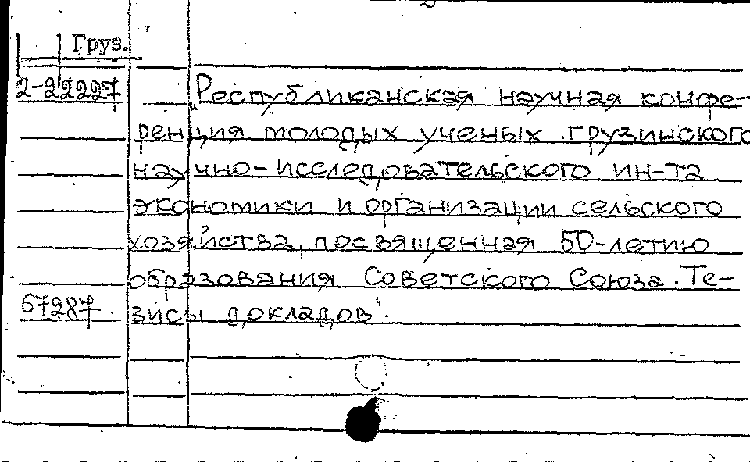 Груз.
2-22227 „Республиканская научная конфе-
ренция молодых ученых грузинского
научно-исследовательского ин-та
экономики и организации сельского
хозяйства, посвященная 50-летию
образования Советского Союза. Те-
67287 зисы докладов".